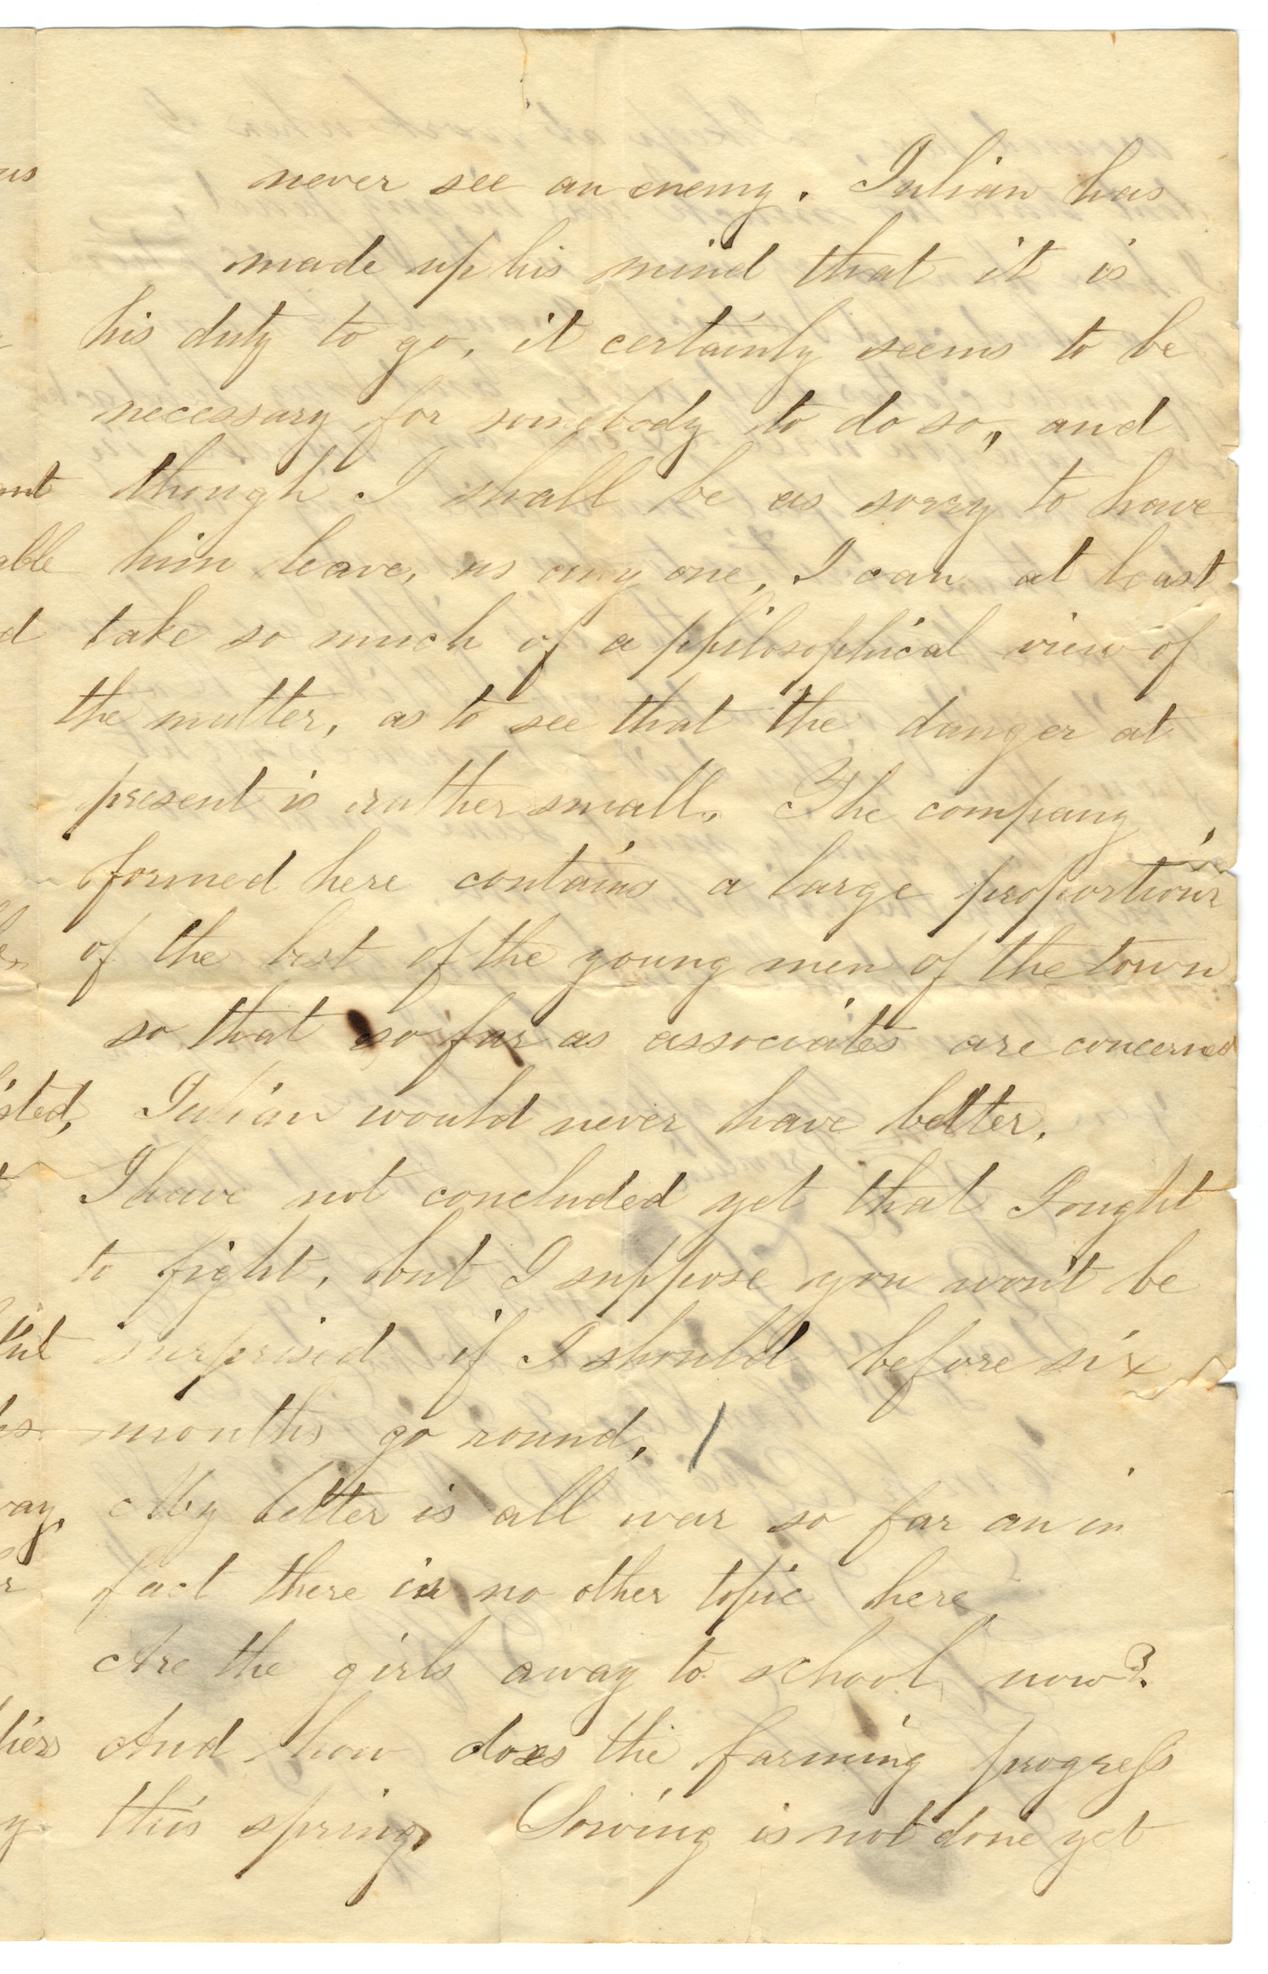 never see an enemy. Julian has
made up his mind that it is
his duty to go, it certainly seems to be
necessary for somebody to do so, and
though I shall be as sorry to have
him leave, as any one, I can at least
take so much of a philosophical view of
the matter, as to see that the danger at
present is rather small. The company
formed here contains a large proportion
of the best of the young men of the town
so that so far as associates are concerned
Julian would never have better.
I have not concluded yet that I ought
to fight, but I suppose you won't be
surprised if I should before six
months go round. /
My letter is all war so far an in
fact there is no other topic here
Are the girls away to school now?
And how does the farming progress
this spring, Sowing is not done yet